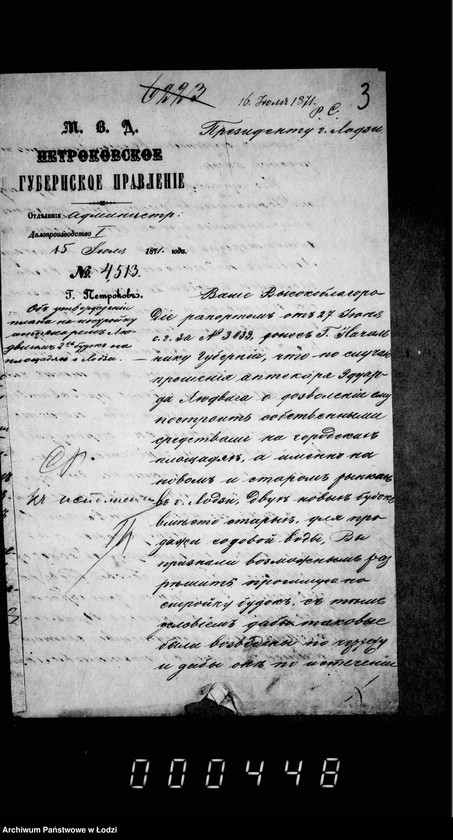 6223
16 Іюля 1871.
Р. С.
3
М. В. Д.
Президенту г. Лодзи
ПЕТРОКОВСКОЕ
ГУБЕРНСКОЕ ПРАВЛЕНІЕ
Отдѣленіе Администр:
Дѣлопроизводство I
15 Іюля 1871 года.
№ 4513.
Г. Петроковъ.
Объ утвержденіи
плана на постройку
аптекаремъ Люд
двигомъ 2хъ будокъ на
площадяхъ г. Лодзи.
Ваше Высокоблагоро
діе рапортомъ отъ 27 Іюня
с. г. за № 3633, донесъ Г. Началь
нику Губерніи, что по случаю
прошенія аптекаря Эдуар
да Людвига о дозволеніи ему
построить собственными
средствами на городскихъ
площадяхъ, а именно на
новомъ и старомъ рынкахъ
въ г. Лодзи, двухъ новыхъ будокъ
вмѣсто старыхъ, для про
дажи содовой воды, Вы
признали возможнымъ раз
рѣшить просимую по
стройку будокъ, съ тѣмъ
условіемъ дабы таковыя
были возведены по
и дабы онъ по истеченіи
Ср.
къ исполненію
000448
Archiwum Państwowe w Łodzi